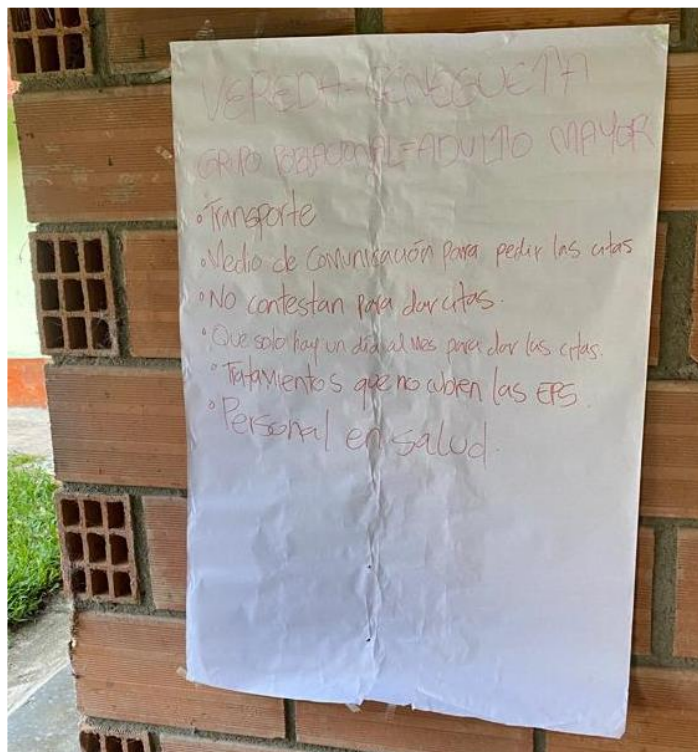 VEREDA-CENEGUETA
GRUPO POBLACIONAL=ADULTO MAYOR
• Transporte
• Medio de Comunicación para pedir las citas
• No contestan para dar citas.
• Que solo hay un día al mes para dar las citas.
• Tratamientos que no cubren las EPS.
• Personal en salud.